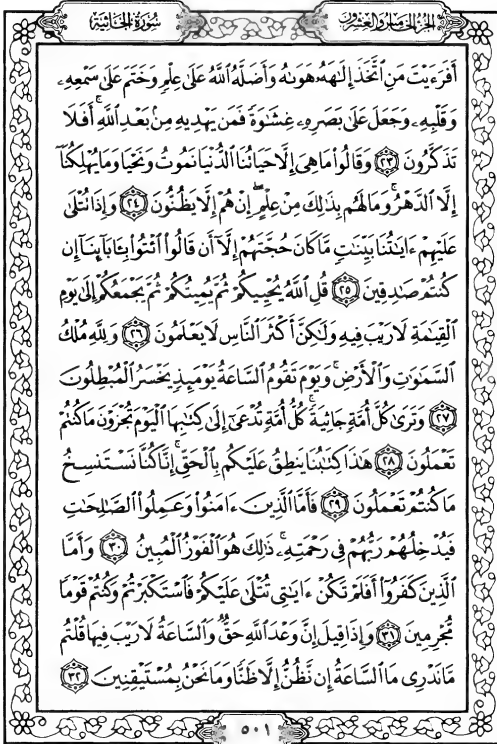 الجزء الخامس والعشرون
سورة الجاثية
أَفَرَءَيْتَ مَنِ ٱتَّخَذَ إِلَٰهَهُۥ هَوَىٰهُ وَأَضَلَّهُ ٱللَّهُ عَلَىٰ عِلْمٍ وَخَتَمَ عَلَىٰ سَمْعِهِۦ
وَقَلْبِهِۦ وَجَعَلَ عَلَىٰ بَصَرِهِۦ غِشَٰوَةً فَمَن يَهْدِيهِ مِنۢ بَعْدِ ٱللَّهِ ۚ أَفَلَا
تَذَكَّرُونَ ﴿٢٣﴾ وَقَالُوا۟ مَا هِىَ إِلَّا حَيَاتُنَا ٱلدُّنْيَا نَمُوتُ وَنَحْيَا وَمَا يُهْلِكُنَآ
إِلَّا ٱلدَّهْرُ ۚ وَمَا لَهُم بِذَٰلِكَ مِنْ عِلْمٍ ۖ إِنْ هُمْ إِلَّا يَظُنُّونَ ﴿٢٤﴾ وَإِذَا تُتْلَىٰ
عَلَيْهِمْ ءَايَٰتُنَا بَيِّنَٰتٍ مَّا كَانَ حُجَّتَهُمْ إِلَّآ أَن قَالُوا۟ ٱئْتُوا۟ بِـَٔابَآئِنَآ إِن
كُنتُمْ صَٰدِقِينَ ﴿٢٥﴾ قُلِ ٱللَّهُ يُحْيِيكُمْ ثُمَّ يُمِيتُكُمْ ثُمَّ يَجْمَعُكُمْ إِلَىٰ يَوْمِ
ٱلْقِيَٰمَةِ لَا رَيْبَ فِيهِ وَلَٰكِنَّ أَكْثَرَ ٱلنَّاسِ لَا يَعْلَمُونَ ﴿٢٦﴾ وَلِلَّهِ مُلْكُ
ٱلسَّمَٰوَٰتِ وَٱلْأَرْضِ ۚ وَيَوْمَ تَقُومُ ٱلسَّاعَةُ يَوْمَئِذٍ يَخْسَرُ ٱلْمُبْطِلُونَ
﴿٢٧﴾ وَتَرَىٰ كُلَّ أُمَّةٍ جَاثِيَةً ۚ كُلُّ أُمَّةٍ تُدْعَىٰٓ إِلَىٰ كِتَٰبِهَا ٱلْيَوْمَ تُجْزَوْنَ مَا كُنتُمْ
تَعْمَلُونَ ﴿٢٨﴾ هَٰذَا كِتَٰبُنَا يَنطِقُ عَلَيْكُم بِٱلْحَقِّ ۚ إِنَّا كُنَّا نَسْتَنسِخُ
مَا كُنتُمْ تَعْمَلُونَ ﴿٢٩﴾ فَأَمَّا ٱلَّذِينَ ءَامَنُوا۟ وَعَمِلُوا۟ ٱلصَّٰلِحَٰتِ
فَيُدْخِلُهُمْ رَبُّهُمْ فِى رَحْمَتِهِۦ ۚ ذَٰلِكَ هُوَ ٱلْفَوْزُ ٱلْمُبِينُ ﴿٣٠﴾ وَأَمَّا
ٱلَّذِينَ كَفَرُوٓا۟ أَفَلَمْ تَكُنْ ءَايَٰتِى تُتْلَىٰ عَلَيْكُمْ فَٱسْتَكْبَرْتُمْ وَكُنتُمْ قَوْمًا
مُّجْرِمِينَ ﴿٣١﴾ وَإِذَا قِيلَ إِنَّ وَعْدَ ٱللَّهِ حَقٌّ وَٱلسَّاعَةُ لَا رَيْبَ فِيهَا قُلْتُم
مَّا نَدْرِى مَا ٱلسَّاعَةُ إِن نَّظُنُّ إِلَّا ظَنًّا وَمَا نَحْنُ بِمُسْتَيْقِنِينَ ﴿٣٢﴾
٥٠١